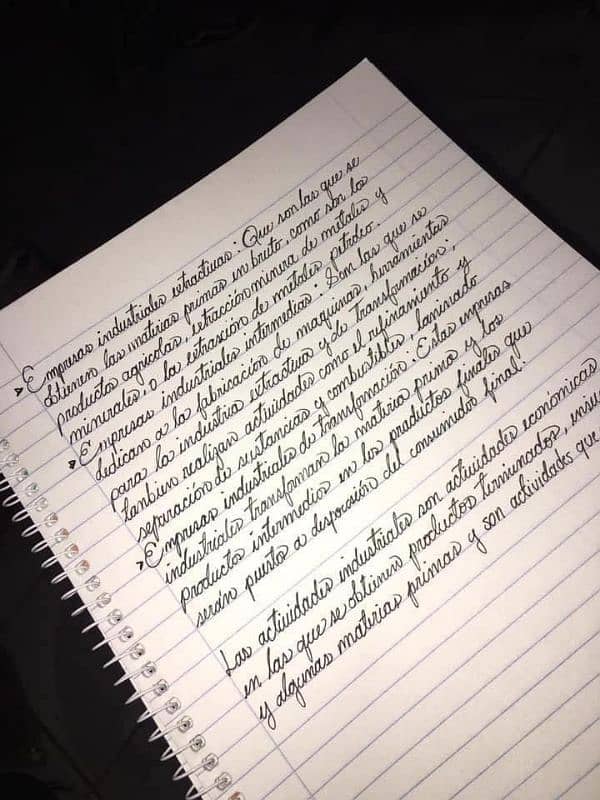 ➤ Empresas industriales extractivas: Que son las que se
obtienen las materias primas en bruto, como son los
productos agrícolas, extracción minera de metales y
minerales, o la extrasión de metales, petróleo.
➤ Empresas industriales intermedias: Son las que se
dedican a la fabricación de maquinas, herramientas
para la industria extractiva y de transformación;
tambien realizan actividades como el refinamiento y
separación de sustancias y combustibles, laminado
➤ Empresas industriales de transformación: Estas empresas
industriales transforman la materia prima y los
productos intermedios en los productos finales que
serán puestos a disposición del consumidor final.
Las actividades industriales son actividades económicas
en las que se obtienen productos terminados,
y algunas materias primas y son actividades que